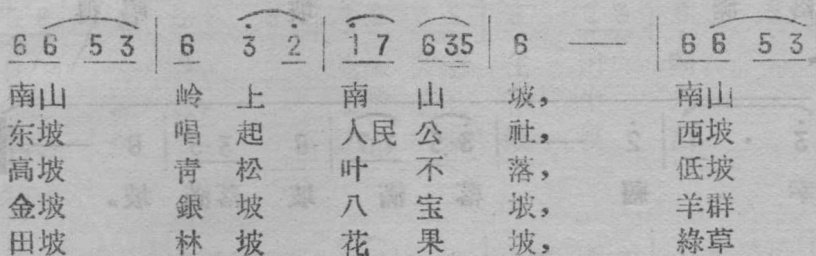 6 6 5 3 | 6 3 2 | 1 7 6 35 | 6 — | 6 6 5 3
南山 岭 上 南 山 坡， 南山
东坡 唱 起 人民 公 社， 西坡
高坡 青 松 叶 不 落， 低坡
金坡 銀 坡 八 宝 坡， 羊群
田坡 林 坡 花 果 坡， 綠草